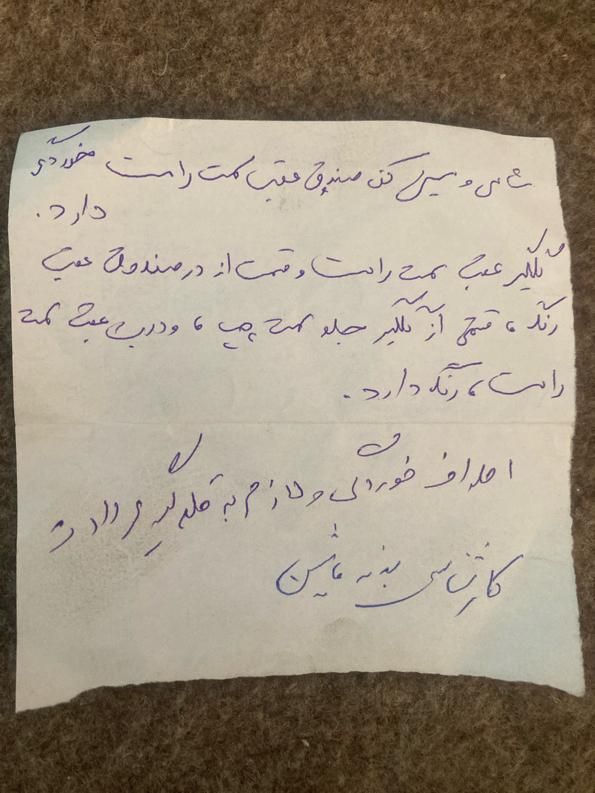 شاسی و سینی کف صندوق عقب سمت راست خوردگی
دارد.
گلگیر عقب سمت راست و قسمت از در صندوق عقب
رنگ ، قسمتی از گلگیر جلو سمت چپ ، و درب عقب سمت
راست ، رنگ دارد.
اطراف خوردگی و لازم به قلم گیری دارد
کارشناسی بدنه ماشین